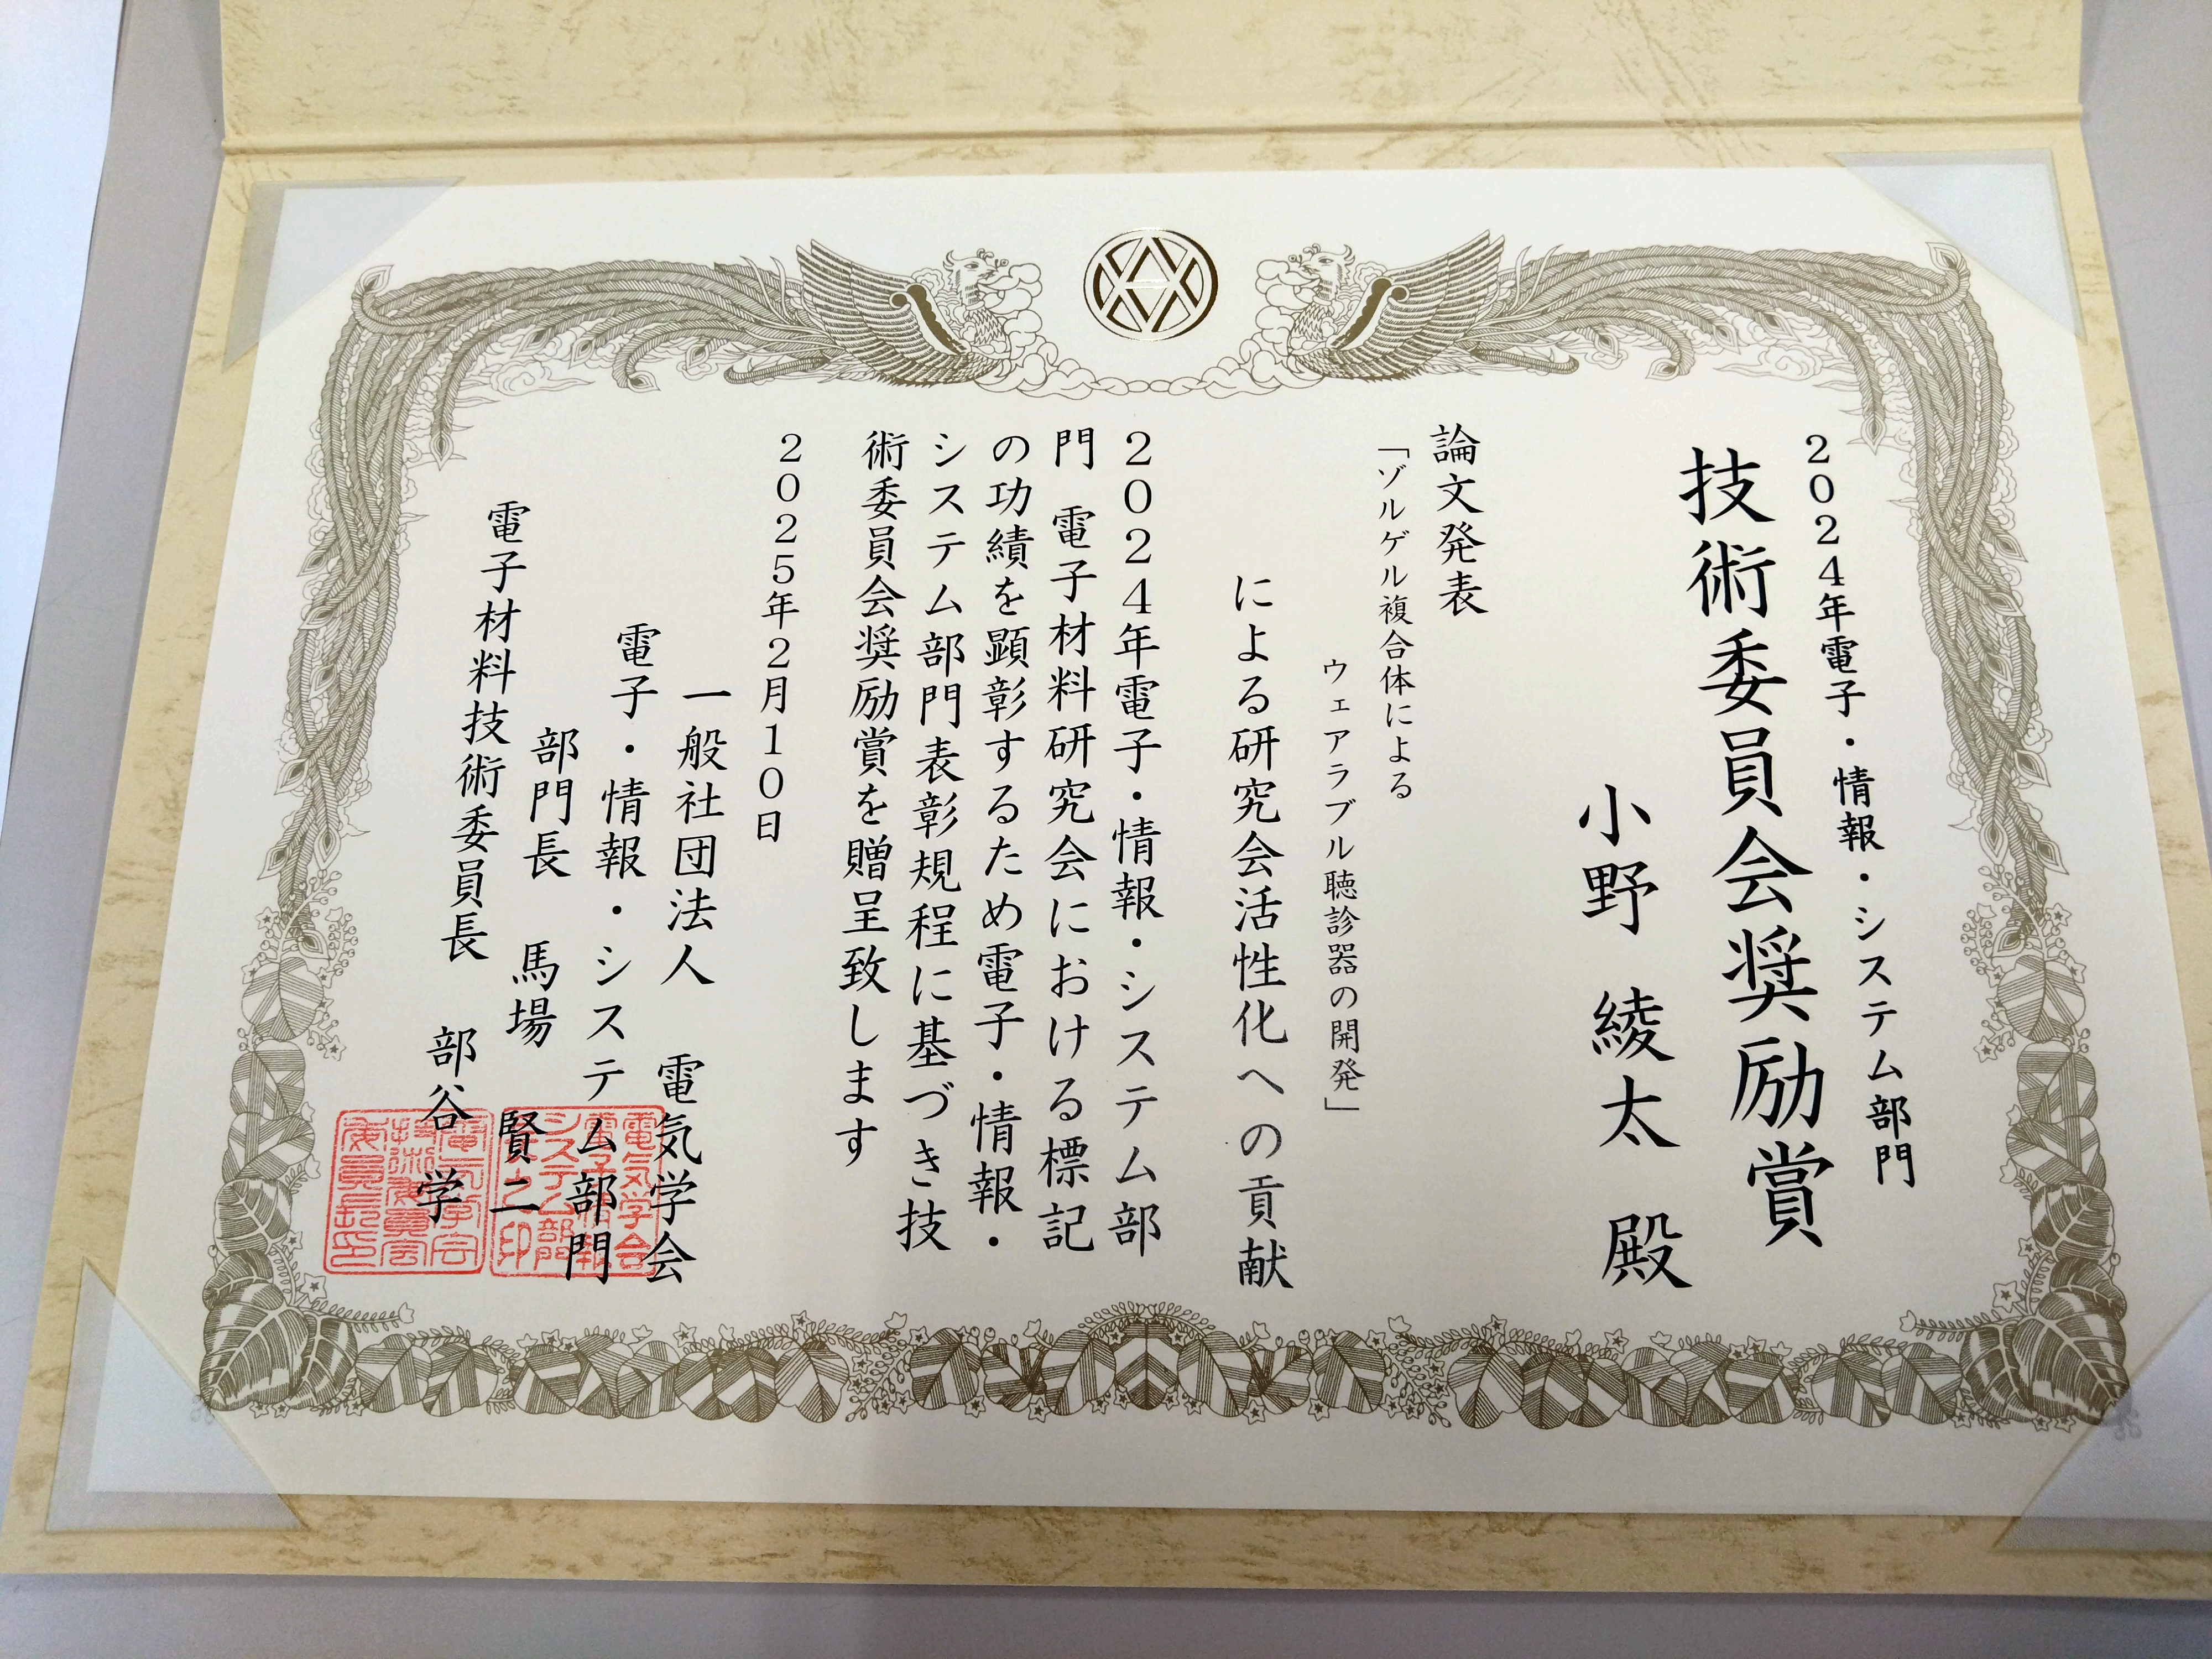 2024年電子・情報・システム部門
技術委員会奨励賞
小野 綾太 殿
論文発表
「ゾルゲル複合体による
ウェアラブル聴診器の開発」
による研究会活性化への貢献
2024年電子・情報・システム部
門 電子材料研究会における標記
の功績を顕彰するため電子・情報・
システム部門表彰規程に基づき技
術委員会奨励賞を贈呈致します
2025年2月10日
一般社団法人 電気学会
電子・情報・システム部門
部門長 馬場 賢二
電子材料技術委員長 部谷 学